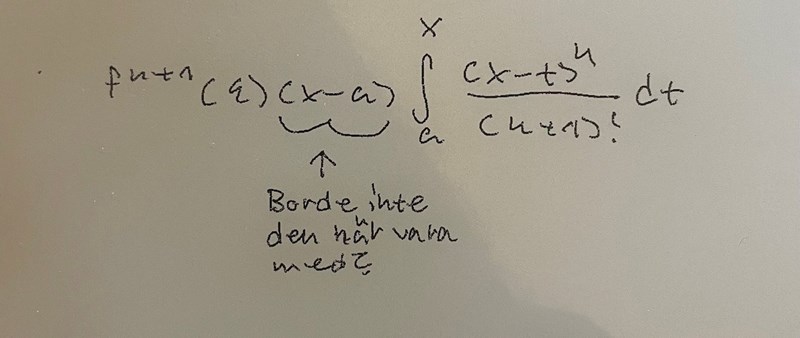 f^{n+1}(ξ)(x-a) \int_a^x \frac{(x-t)^n}{(n+1)!} dt
Borde inte
den här vara
med?